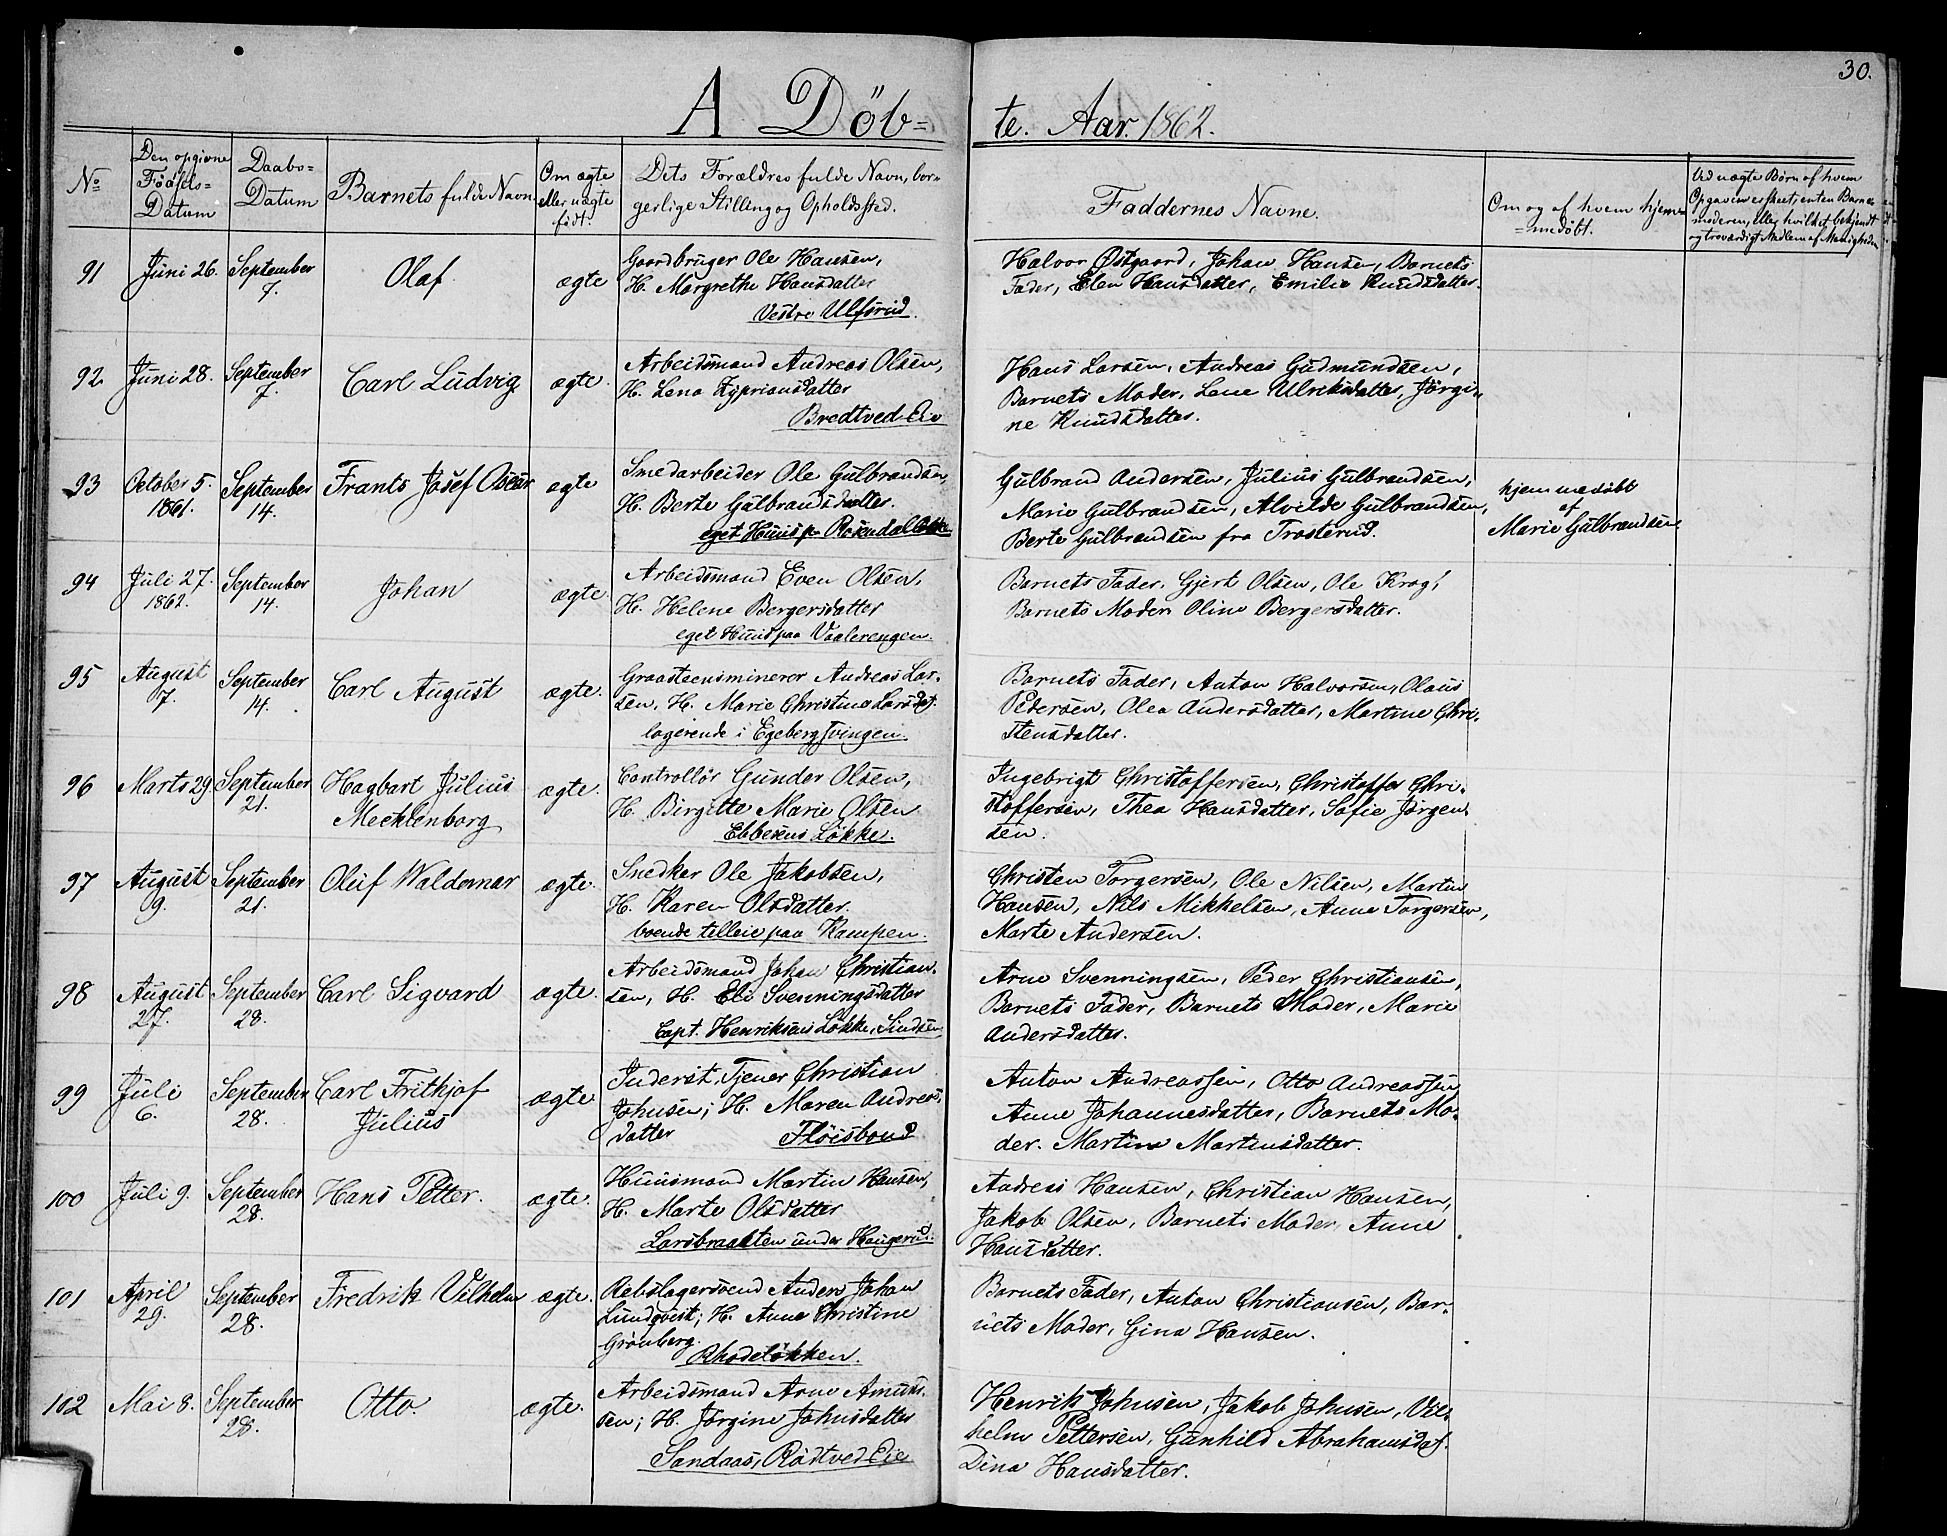 30.
A Döb-
te. Aar. 1862.
No
Den opgivne Födsels-Datum
Daabs-Datum
Barnets fulde Navn
Om ægte eller uægte födt.
Dets Forældres fulde Navn, borgerlige Stilling og Opholdssted.
Faddernes Navne.
Om og af hvem hjemmedöbt.
Ved uægte Børn af hvem Opgaven er skeet; enten Barnemoderen, eller hvilket bekjendt og troværdigt Medlem af Menigheden
91 Juni 26. September 7. Olaf ægte
Gaardbruger Ole Hansen,
H. Margrethe Hansdatter
Vestre Ulfsrud.
Halvor Østgaard, Johan Hansen, Barnets
Fader, Elen Hansdatter, Emilie Knudsdatter.
92 Juni 28. September 7. Carl Ludvig ægte.
Arbeidsmand Andreas Olsen,
H. Lena Zipriansdatter
Bredtved Eie
Hans Larsen, Andreas Gudmundsen,
Barnets Moder, Lene Ulriksdatter, Jörgi-
ne Knudsdatter.
93 October 5. 1861. September 14. Frants Josef Oscar ægte
Smedarbeider Ole Gulbrandsen,
H. Berte Gulbrandsdatter.
eget Huus p. Rosendal
Gulbrand Andersen, Julius Gulbrandsen,
Marie Gulbrandsen, Alvilde Gulbrandsen,
Berte Gulbrandsen fra Trosterud.
hjemmedöbt
af
Marie Gulbrandsen
94 Juli 27. 1862. September 14. Johan ægte.
Arbeidsmand Even Olsen,
H. Helene Bergersdatter
eget Huus paa Vaalerengen.
Barnets Fader, Gjert Olsen, Ole Krog,
Barnets Moder Oline Bergersdatter.
95 August 7. September 14. Carl August ægte.
Graasteensminerer Andreas Lar-
sen, H. Marie Christine Larsdat.
logerende i Egebergsvingen.
Barnets Fader, Anton Halvorsen, Olaus
Pedersen, Olea Andersdatter, Martine Chri-
stensdatter.
96 Marts 29 September 21. Hagbart Julius Mecklenborg ægte.
Controllör Gunder Olsen,
H. Birgitte Marie Olsen
Ebbesens Løkke.
Ingebrigt Christoffersen, Christoffer Chri-
stoffersen, Thea Hansdatter, Sofie Jörgen-
sen.
97 August 9. September 21. Oluf Waldemar ægte.
Snedker Ole Jakobsen,
H. Karen Olsdatter.
boende tilleie paa Kampen.
Christen Torgersen, Ole Nilsen, Martin
Hansen, Nils Mikkelsen, Anne Torgersen,
Marte Andersen.
98 August 27. September 28. Carl Sigvard ægte.
Arbeidsmand Johan Christian-
sen, H. Eli Svenningsdatter
Capt. Henriksens Løkke, Sindsen
Arne Svenningsen, Peder Christiansen,
Barnets Fader, Barnets Moder, Marie
Andersdatter.
99 Juli 6. September 28. Carl Fritkjof Julius ægte.
Inderst, Tjener Christian
Johnsen; H. Maren Andreas-
datter Fløisbond
Anton Andreassen, Otto Andreassen
Anne Johannesdatter, Barnets Mo-
der. Martine Martinsdatter.
100 Juli 9. September 28. Hans Petter. ægte.
Huusmand Martin Hansen,
H. Marte Olsdatter
Larsbraaten under Haugerud.
Andreas Hansen, Christian Hansen,
Jakob Olsen, Barnets Moder, Anne
Hansdatter.
101 April 29. September 28. Fredrik Vilhelm ægte.
Rebslagersvend Anders Johan
Lundqvist; H. Anne Christine
Grönberg.
Rhodeløkken.
Barnets Fader, Anton Christiansen, Bar-
nets Moder, Gina Hansen.
102 Mai 8. September 28. Otto. ægte.
Arbeidsmand Arne Amund-
sen; H. Jörgine Johnsdatter
Sandaas, Rødtved Eie
Henrik Johnsen, Jakob Johnsen, Vil-
helm Pettersen, Gunhild Abrahamsdat.
Dina Hansdatter.